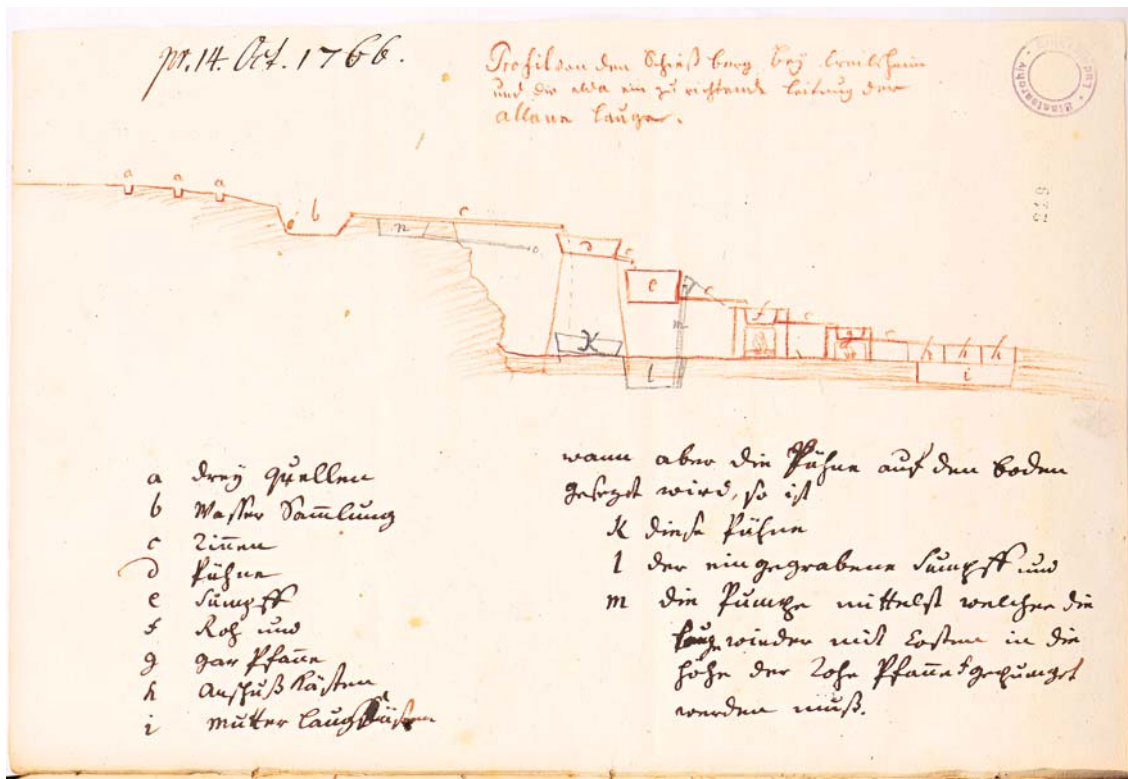 pr. 14. Oct. 1766.
Profil von den Schieß berg bey Creilsheim
und die alda ein zu richtende Leitung der
allaun Lauge.
Staatsarchiv
228
a a a
b
c
n
o
d
c
e
c
m
f
c
g
c
h h h
K
l
i
a drey Quellen
b Wasser Sam̅lung
c Rin̅en
d Bühne
e Sumpff
f Roh und
g gar Pfan̅e
h Anschuß Kästen
i Mutter Laug Kästen
wann aber die Bühne auf den Boden
gesezt wird, so ist
K diese Bühne
l der eingegrabene Sumpff und
m die Pumpe mittelst welcher die
Lauge wieder mit Costen in die
Höhe der Rohe Pfan̅e f gepumpet
werden muß.